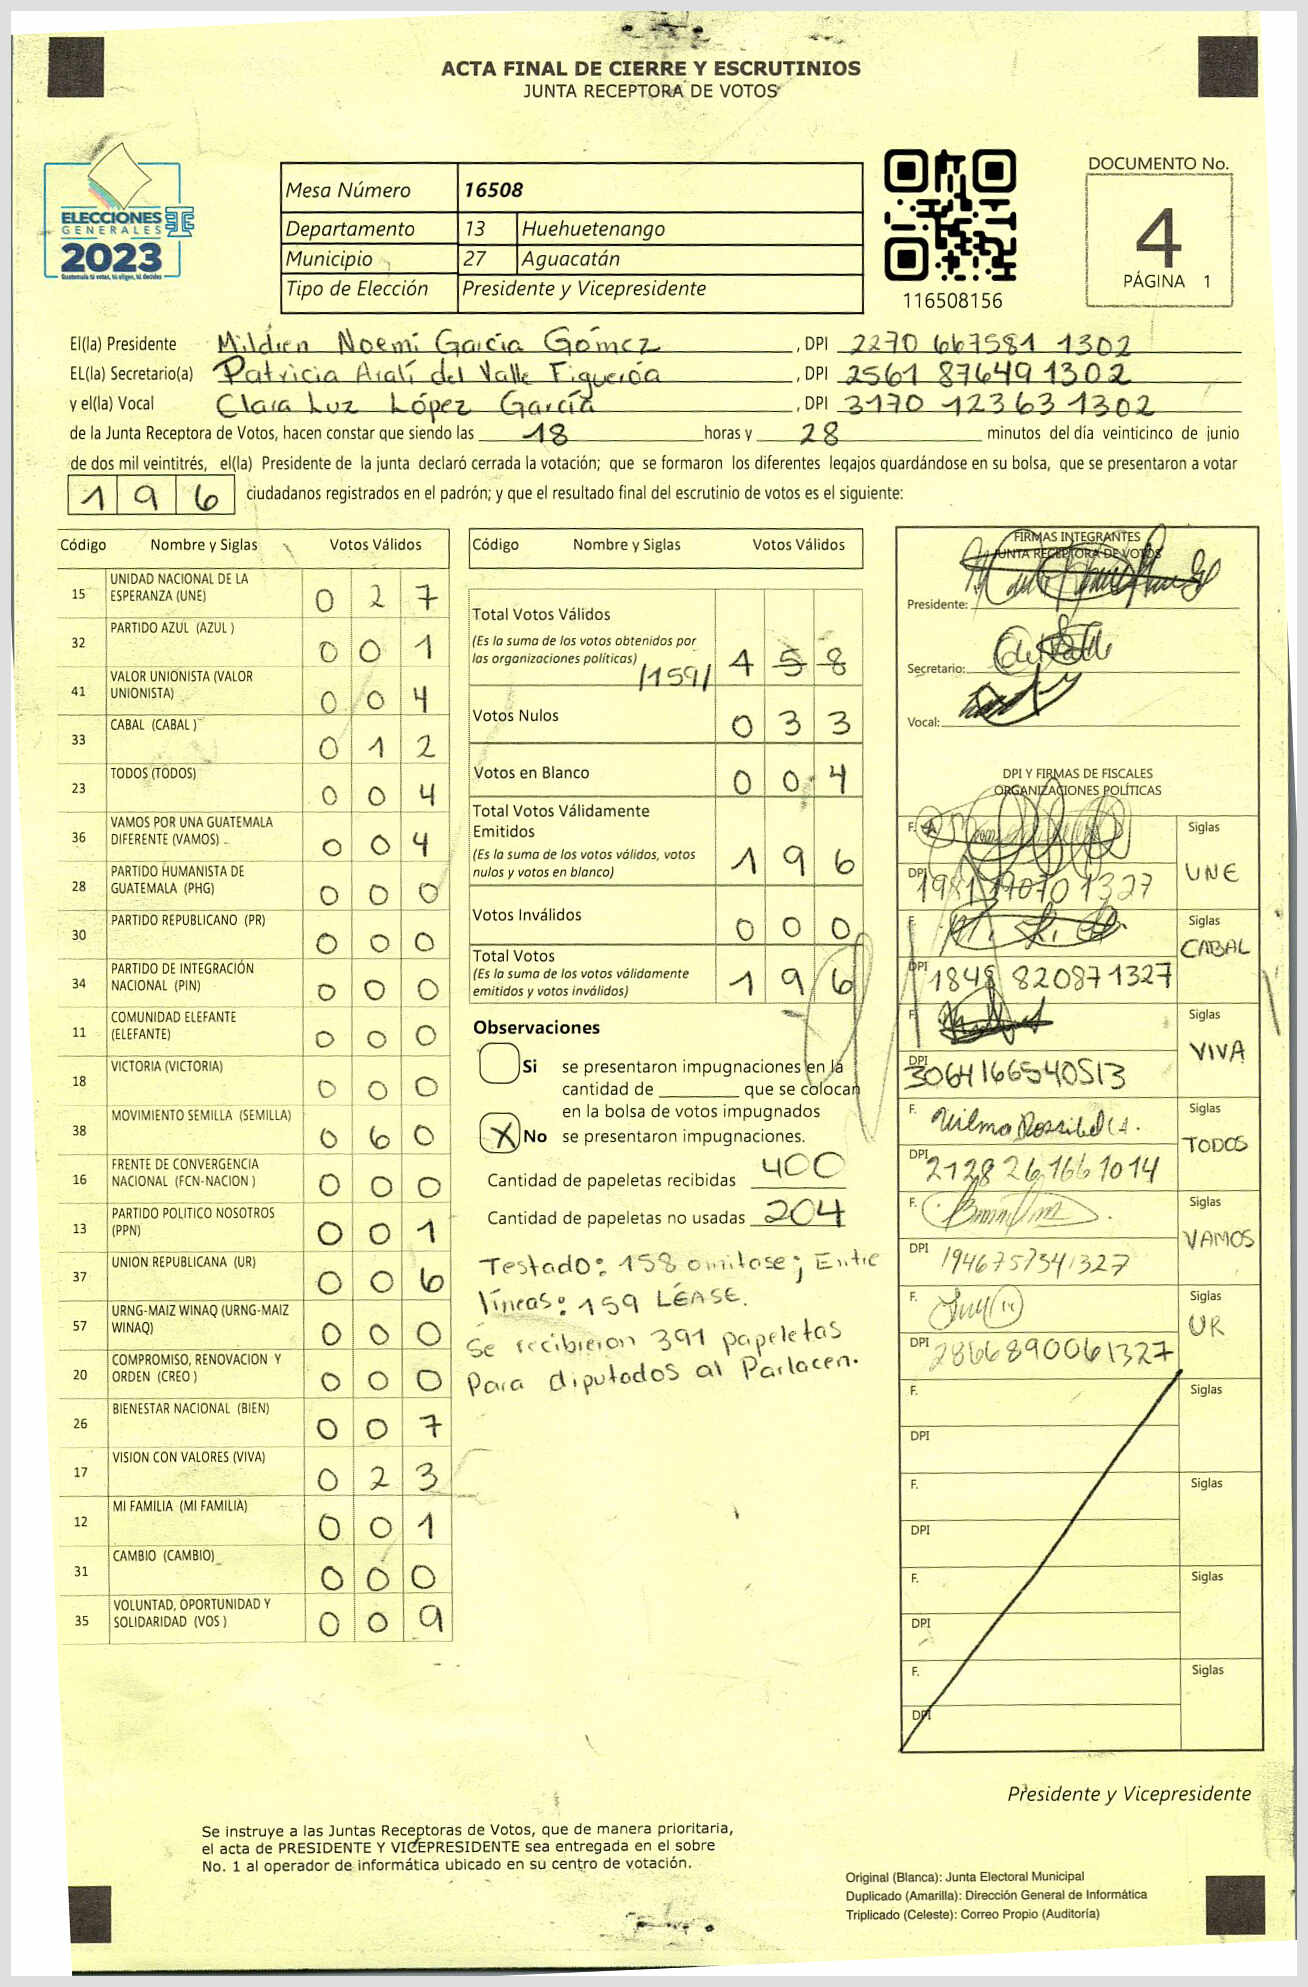 ACTA FINAL DE CIERRE Y ESCRUTINIOS
JUNTA RECEPTORA DE VOTOS
ELECCIONES
GENERALES
2023
Guatemala tú votas, tú eliges, tú decides
Mesa Número 16508
Departamento 13 Huehuetenango
Municipio 27 Aguacatán
Tipo de Elección Presidente y Vicepresidente
116508156
DOCUMENTO No.
4
PÁGINA 1
El(la) Presidente Mildien Noemi García Gómez, DPI 2270 667581 1302
EL(la) Secretario(a) Patricia Aralí del Valle Figueróa, DPI 2561 87649 1302
y el(la) Vocal Clara Luz López García, DPI 3170 12363 1302
de la Junta Receptora de Votos, hacen constar que siendo las 18 horas y 28 minutos del día veinticinco de junio
de dos mil veintitrés, el(la) Presidente de la junta declaró cerrada la votación; que se formaron los diferentes legajos quardándose en su bolsa, que se presentaron a votar
196 ciudadanos registrados en el padrón; y que el resultado final del escrutinio de votos es el siguiente:
Código Nombre y Siglas Votos Válidos
15 UNIDAD NACIONAL DE LA ESPERANZA (UNE) 0 2 7
32 PARTIDO AZUL (AZUL ) 0 0 1
41 VALOR UNIONISTA (VALOR UNIONISTA) 0 0 4
33 CABAL (CABAL ) 0 1 2
23 TODOS (TODOS) 0 0 4
36 VAMOS POR UNA GUATEMALA DIFERENTE (VAMOS) 0 0 4
28 PARTIDO HUMANISTA DE GUATEMALA (PHG) 0 0 0
30 PARTIDO REPUBLICANO (PR) 0 0 0
34 PARTIDO DE INTEGRACIÓN NACIONAL (PIN) 0 0 0
11 COMUNIDAD ELEFANTE (ELEFANTE) 0 0 0
18 VICTORIA (VICTORIA) 0 0 0
38 MOVIMIENTO SEMILLA (SEMILLA) 0 6 0
16 FRENTE DE CONVERGENCIA NACIONAL (FCN-NACION ) 0 0 0
13 PARTIDO POLITICO NOSOTROS (PPN) 0 0 1
37 UNION REPUBLICANA (UR) 0 0 6
57 URNG-MAIZ WINAQ (URNG-MAIZ WINAQ) 0 0 0
20 COMPROMISO, RENOVACION Y ORDEN (CREO ) 0 0 0
26 BIENESTAR NACIONAL (BIEN) 0 0 7
17 VISION CON VALORES (VIVA) 0 2 3
12 MI FAMILIA (MI FAMILIA) 0 0 1
31 CAMBIO (CAMBIO) 0 0 0
35 VOLUNTAD, OPORTUNIDAD Y SOLIDARIDAD (VOS ) 0 0 9
Código Nombre y Siglas Votos Válidos
Total Votos Válidos
(Es la suma de los votos obtenidos por
las organizaciones políticas) /159/ 1 5 8
Votos Nulos 0 3 3
Votos en Blanco 0 0 4
Total Votos Válidamente
Emitidos
(Es la suma de los votos válidos, votos
nulos y votos en blanco) 1 9 6
Votos Inválidos 0 0 0
Total Votos
(Es la suma de los votos válidamente
emitidos y votos inválidos) 1 9 6
Observaciones
Si se presentaron impugnaciones en la
cantidad de ________ que se colocan
en la bolsa de votos impugnados
X No se presentaron impugnaciones.
Cantidad de papeletas recibidas 400
Cantidad de papeletas no usadas 204
Testado: 158 omitase; Entre
líneas: 159 LÉASE.
Se recibieron 391 papeletas
Para diputados al Parlacen.
FIRMAS INTEGRANTES
JUNTA RECEPTORA DE VOTOS
Presidente:
Secretario:
Vocal:
DPI Y FIRMAS DE FISCALES
ORGANIZACIONES POLÍTICAS
F. Siglas
DPI UNE
F. Siglas
DPI 1848 820871327 CABAL
F. Siglas
DPI 3064166540513 VIVA
F. Siglas
DPI 2128 26 1661014 TODOS
F. Siglas
DPI 1946757341327 VAMOS
F. Siglas
DPI 2866890061327 UR
F. Siglas
DPI
F. Siglas
DPI
F. Siglas
DPI
F. Siglas
DPI
Presidente y Vicepresidente
Se instruye a las Juntas Receptoras de Votos, que de manera prioritaria,
el acta de PRESIDENTE Y VICEPRESIDENTE sea entregada en el sobre
No. 1 al operador de informática ubicado en su centro de votación.
Original (Blanca): Junta Electoral Municipal
Duplicado (Amarilla): Dirección General de Informática
Triplicado (Celeste): Correo Propio (Auditoría)